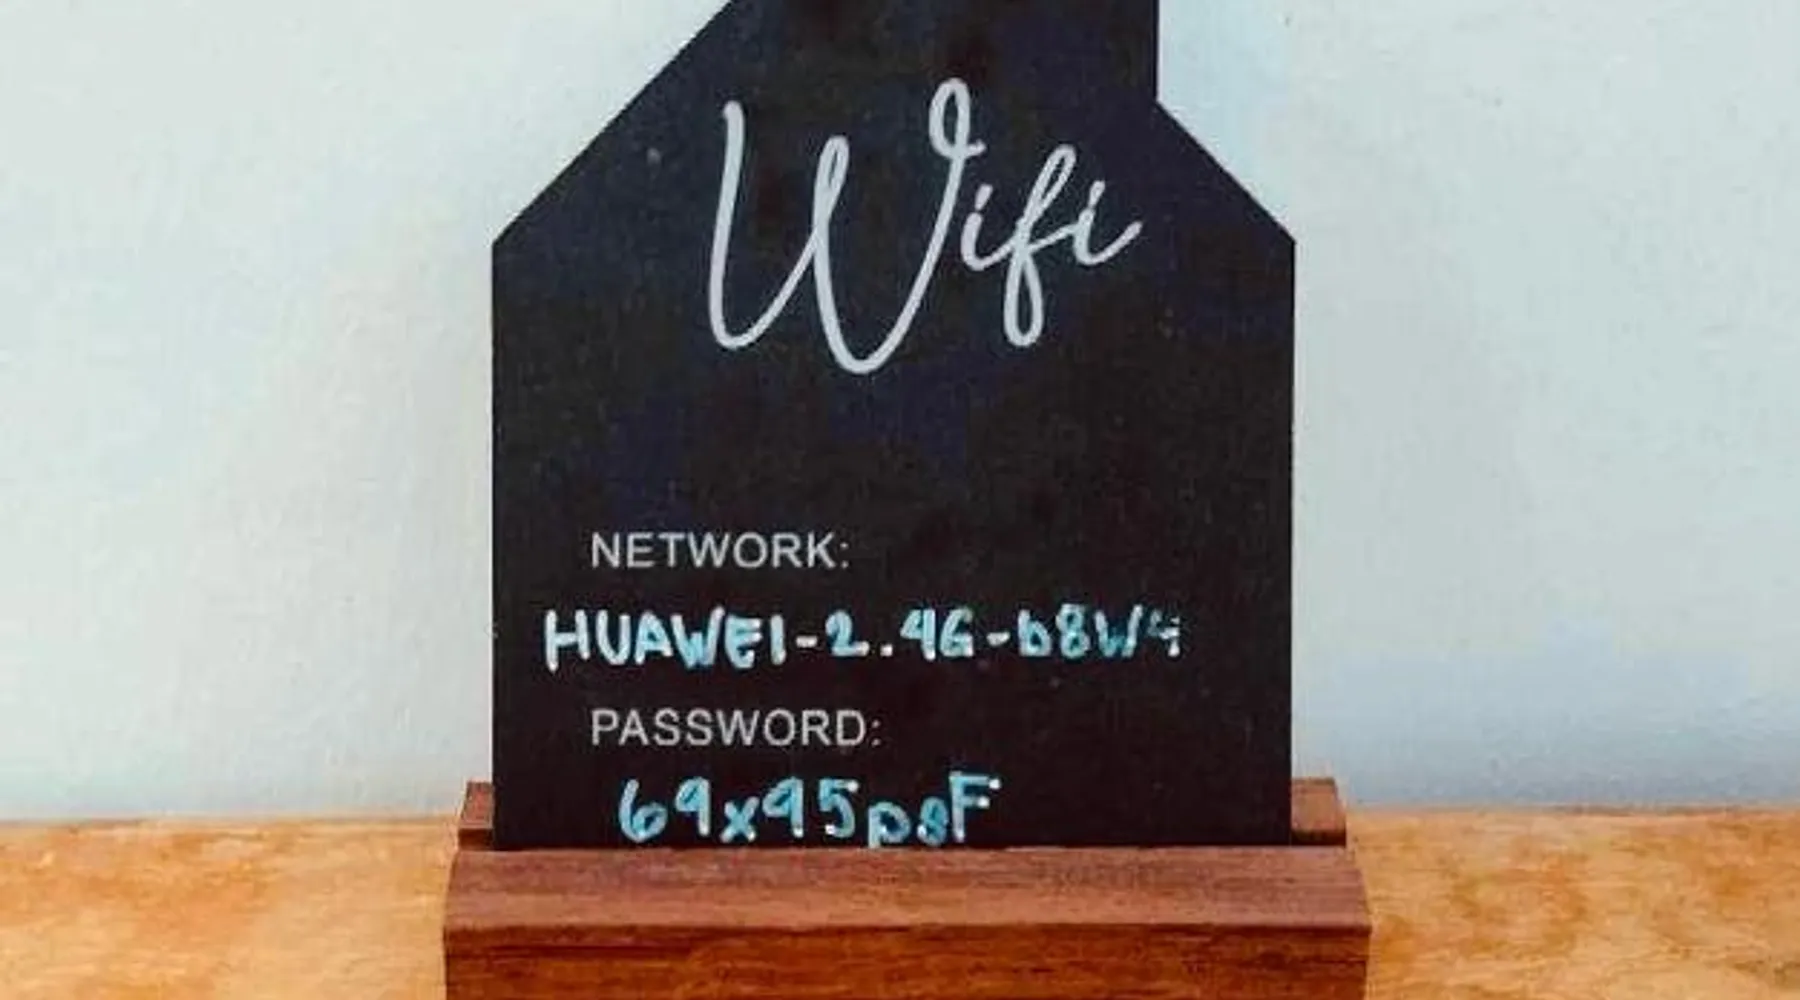 Wifi
NETWORK:
HUAWEI-2.4G-b8W4
PASSWORD:
69x95psF